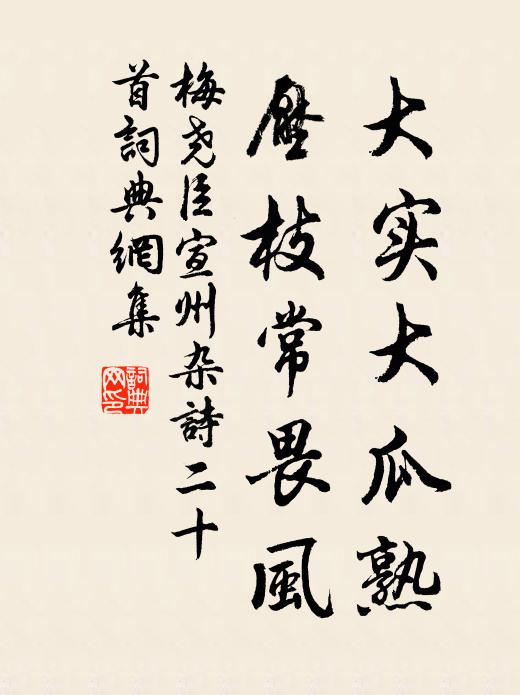 大实大瓜熟
壓枝常畏風
梅尧臣宣州杂詩二十
首詞典網集
詞典网印